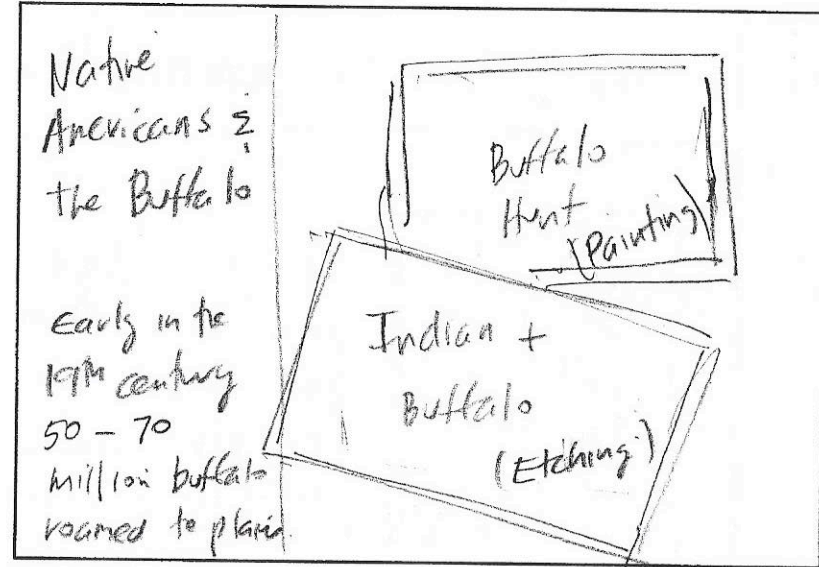 Native
Americans &
the Buffalo
Early in the
19th century
50 - 70
million buffalo
roamed to plains
Buffalo
Hunt
(Painting)
Indian +
Buffalo
(Etching)